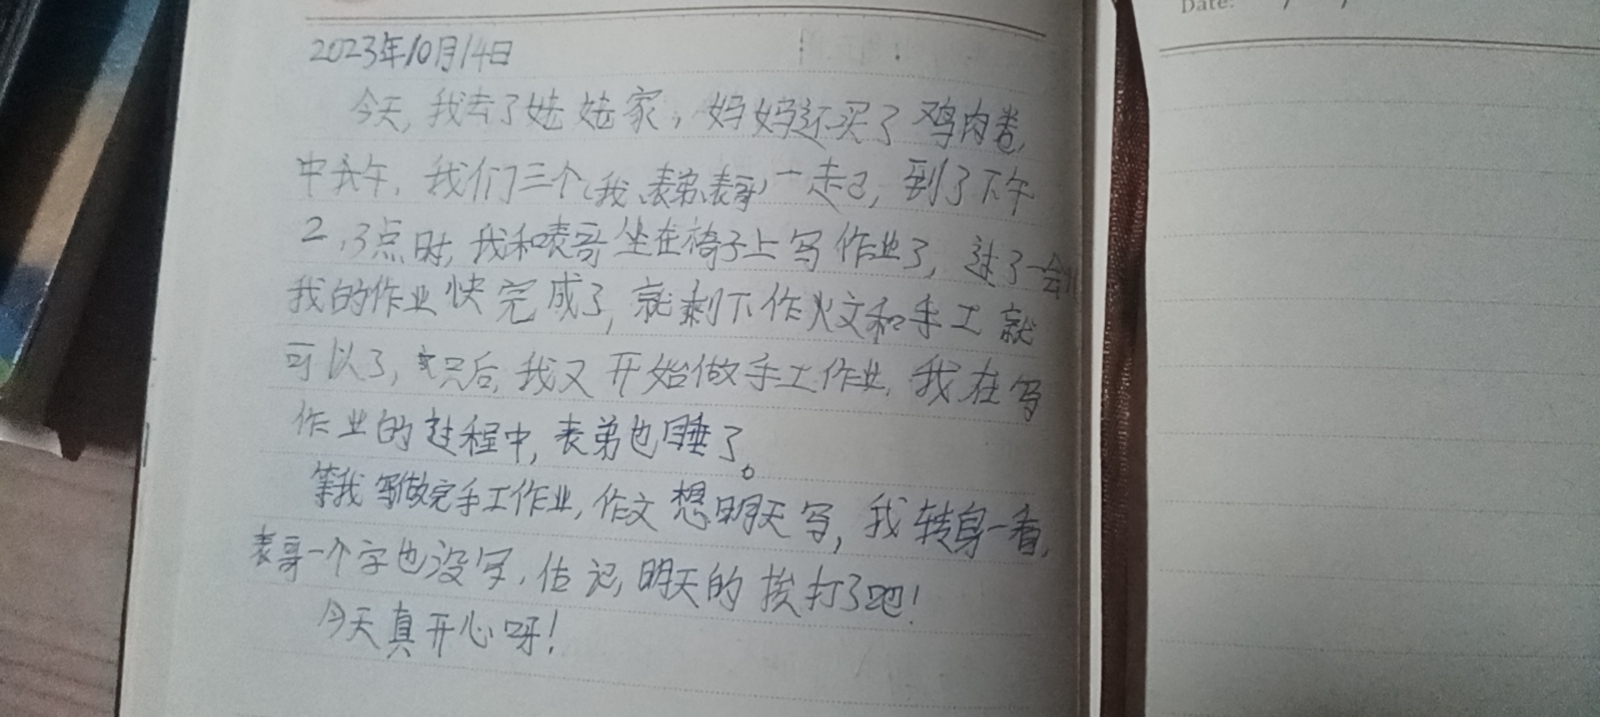 Date:
2023年10月14日
今天,我去了姥姥家,妈妈还买了鸡肉卷,
中午,我们三个(我、表弟、表哥)一起,到了下午
2,3点时,我和表哥坐在椅子上写作业了,过了一会儿
我的作业快完成了,就剩下作文和手工就
可以了,后,我又开始做手工作业,我在写
作业的过程中,表弟也睡了。
等我写做完手工作业,作文想明天写,我转身一看,
表哥一个字也没写,估记,明天的挨打了吧!
今天真开心呀!